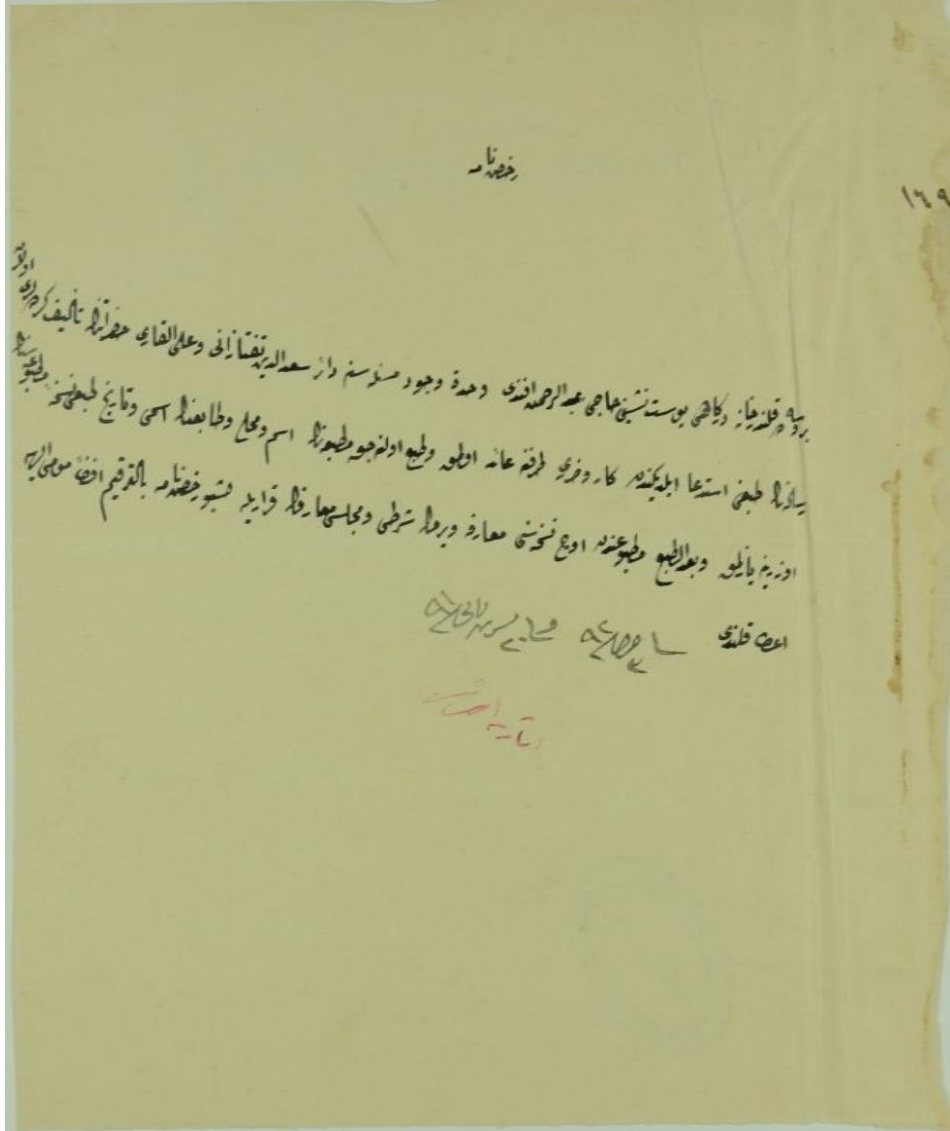 رخصتنامه
١٦٩
بروسه ده قلندرخانه دركاهى پوست نشينى حاجى عبدالرحمن افندى وحدة وجود مسئله سنه دائر سعدالدين تفتازانى وعلى القارى حضراتنك تأليف كرده لرى اولان
رساله نك طبعنى استدعا ايلديكندن كار وضررى طرفنه عائد اولمق وطبع اولنه جق مطبعه نك اسم ومحلى وطابعنك اسمى وتاريخ طبعى نسخ مطبوعه سنك
اوزرينه يازلمق وبعد الطبع مطبوعندن اوچ نسخه سنى معارفه ويرمك شرطى ومجلس معارفك قراريله اشبو رخصتنامه بالترقيم افندئ مومى اليه
اعطا قلندى